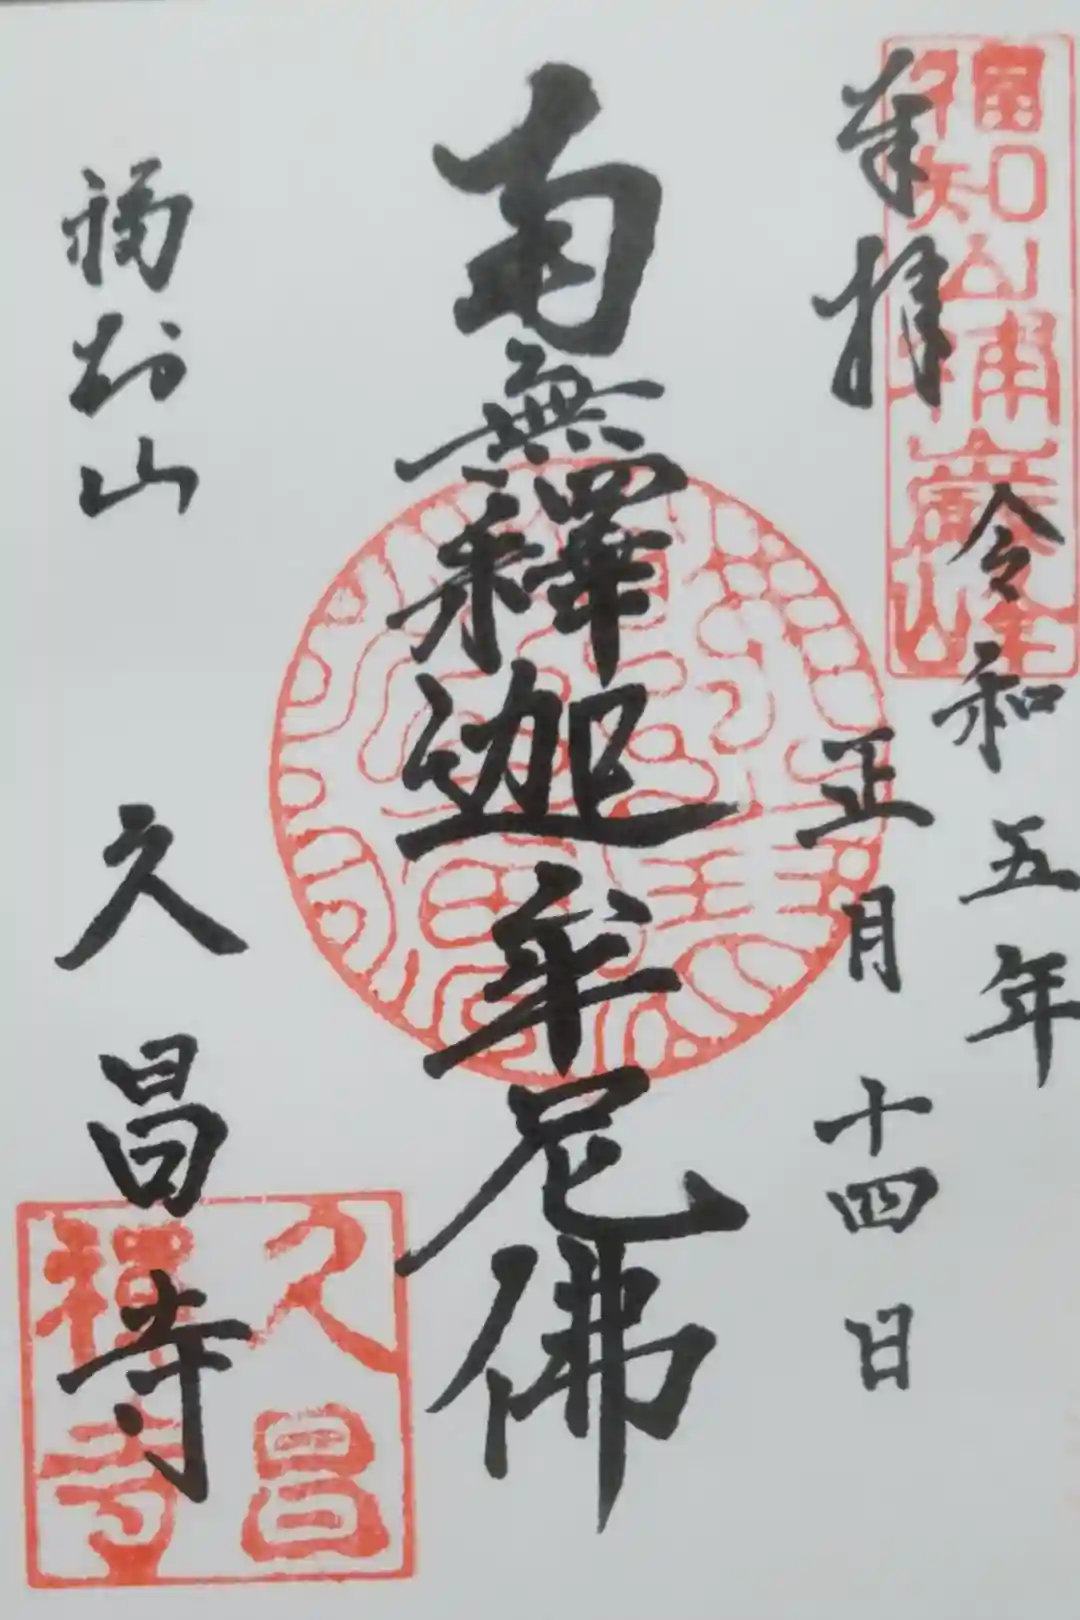 奉拝
令和五年
正月十四日
南無釋迦牟尼佛
福知山
久昌寺
久昌
禅寺